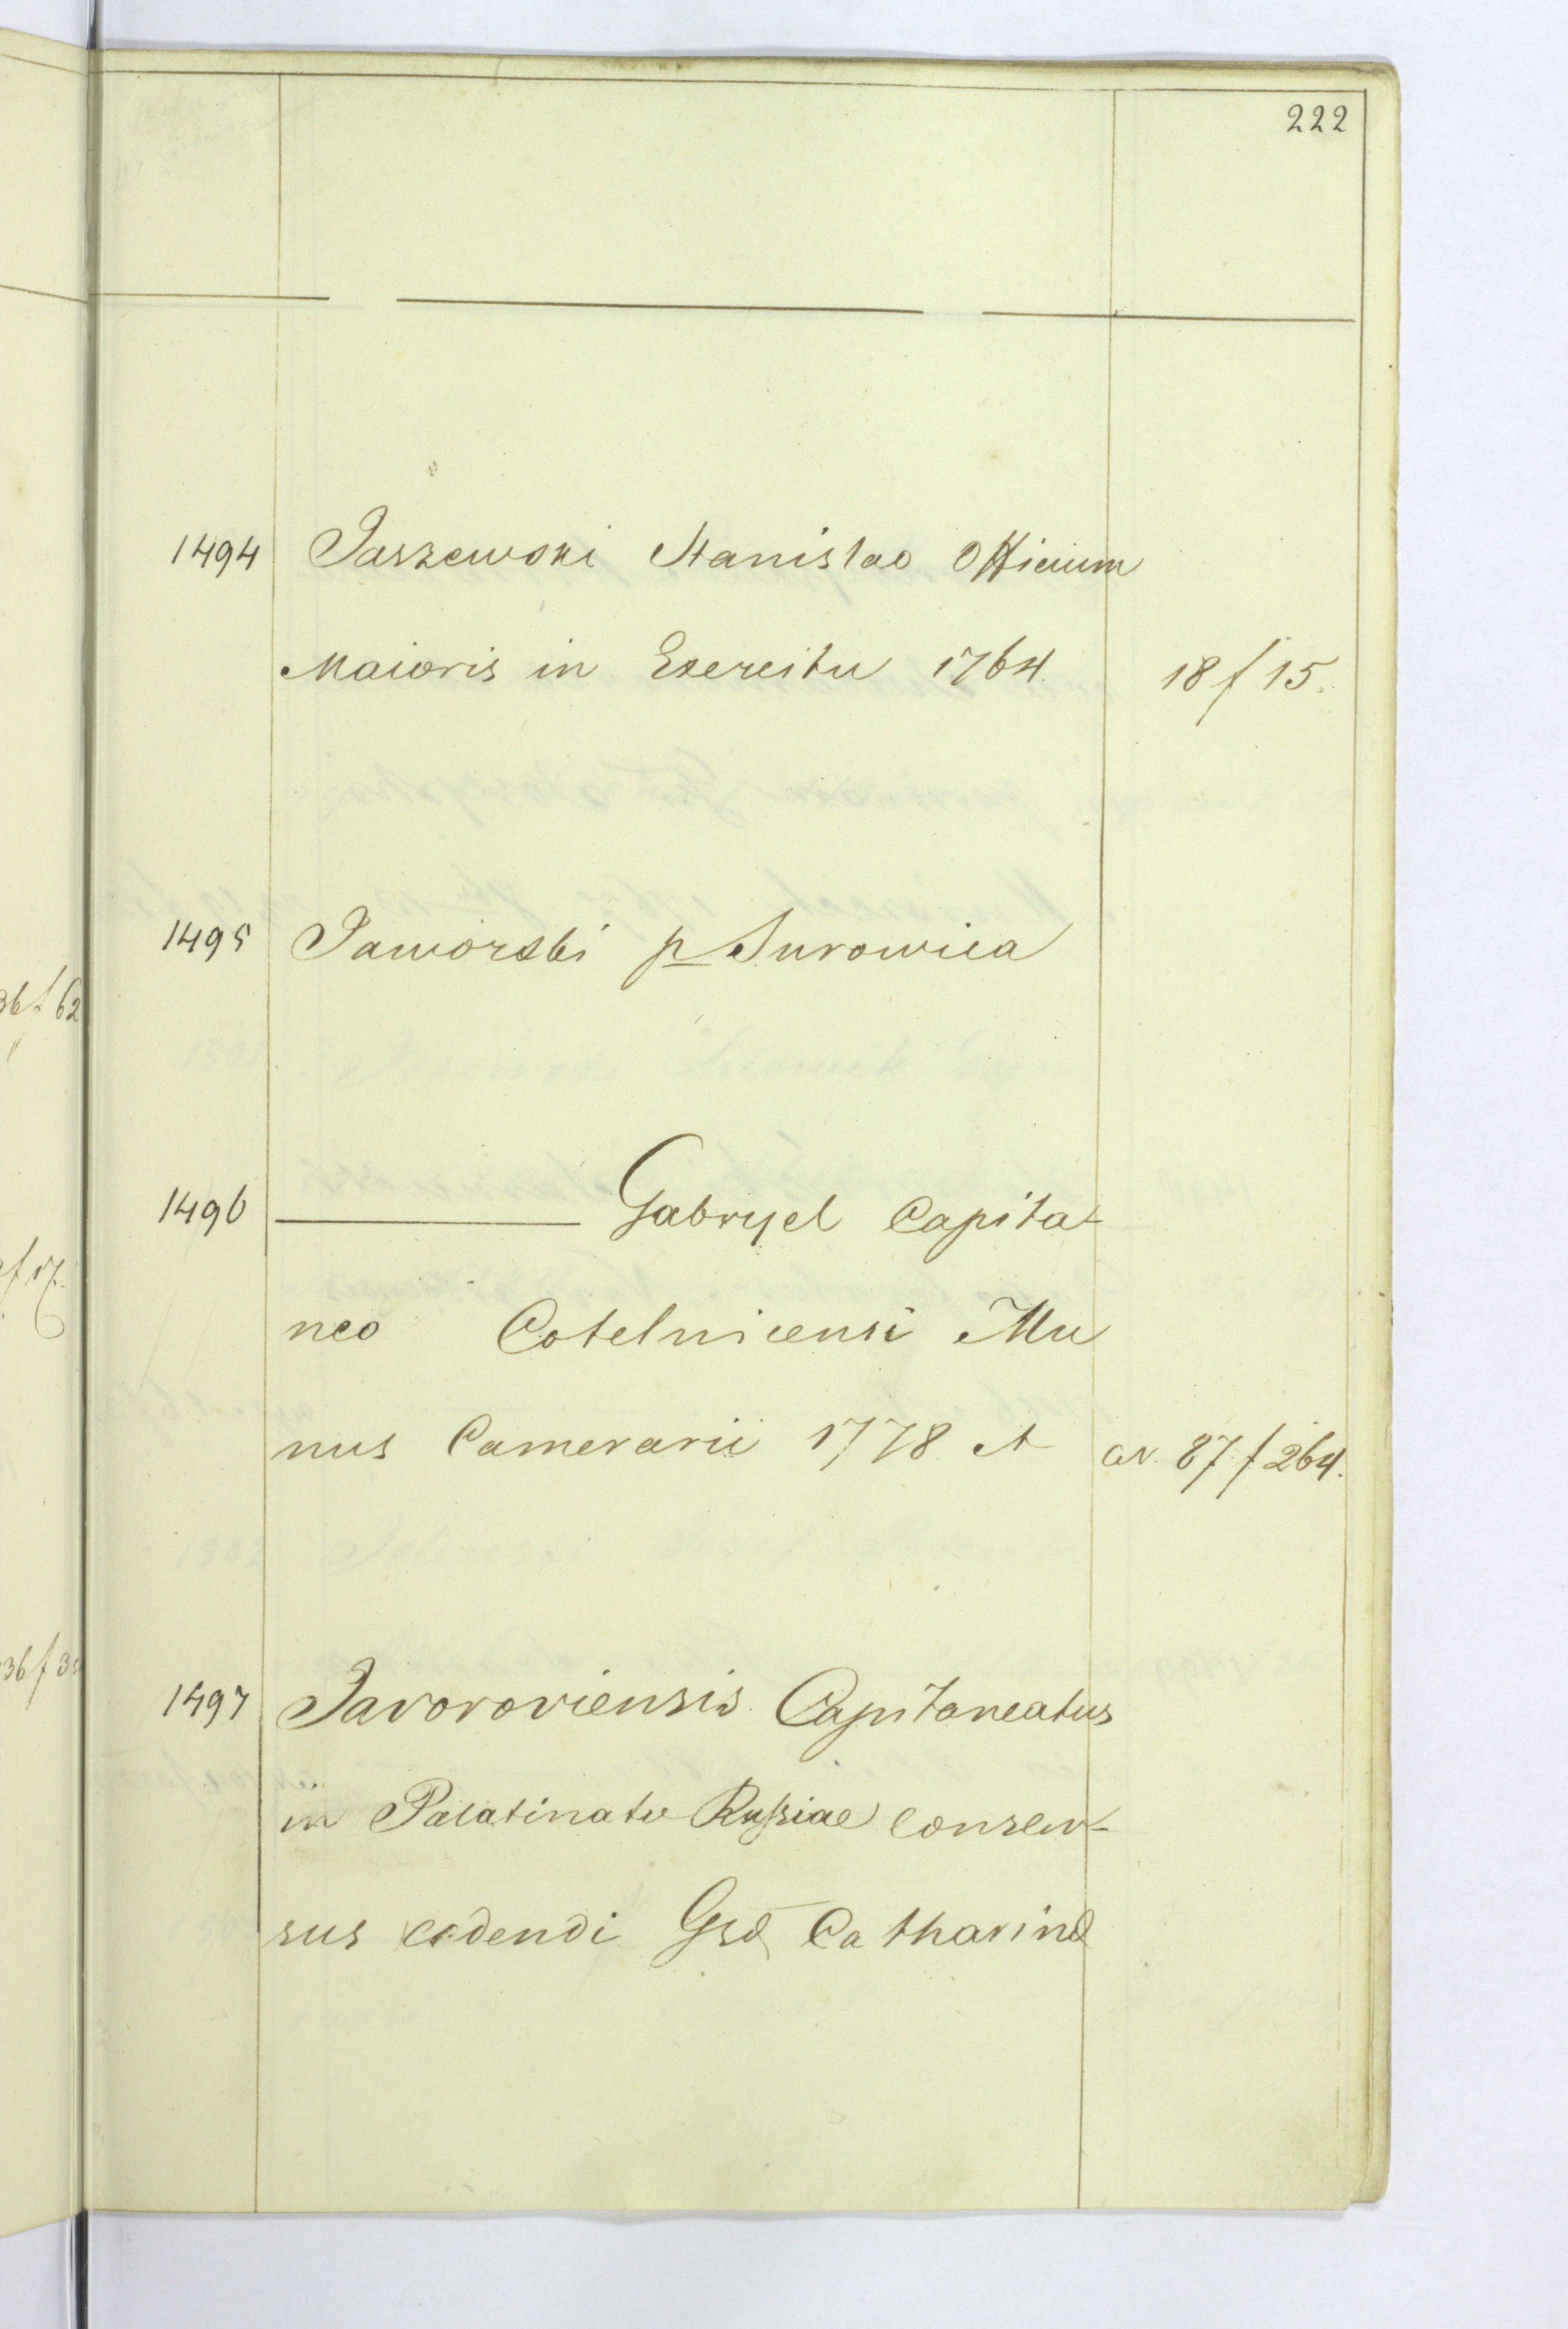 222
1494 Jaszewski Stanislao Officium
Maioris in Exercitu 1764. 18 f 15.
1495 Jaworski p Surowica
1496 ——— Gabryel Capita-
neo Cotelnicensi Mu
nus Camerarii 1778. A cor. 87 f 264.
1497 Javoroviensis Capitaneatus
in Palatinatu Russiae consen-
sus cedendi Gsd Catharind
36 f 62
f 17.
36 f 3